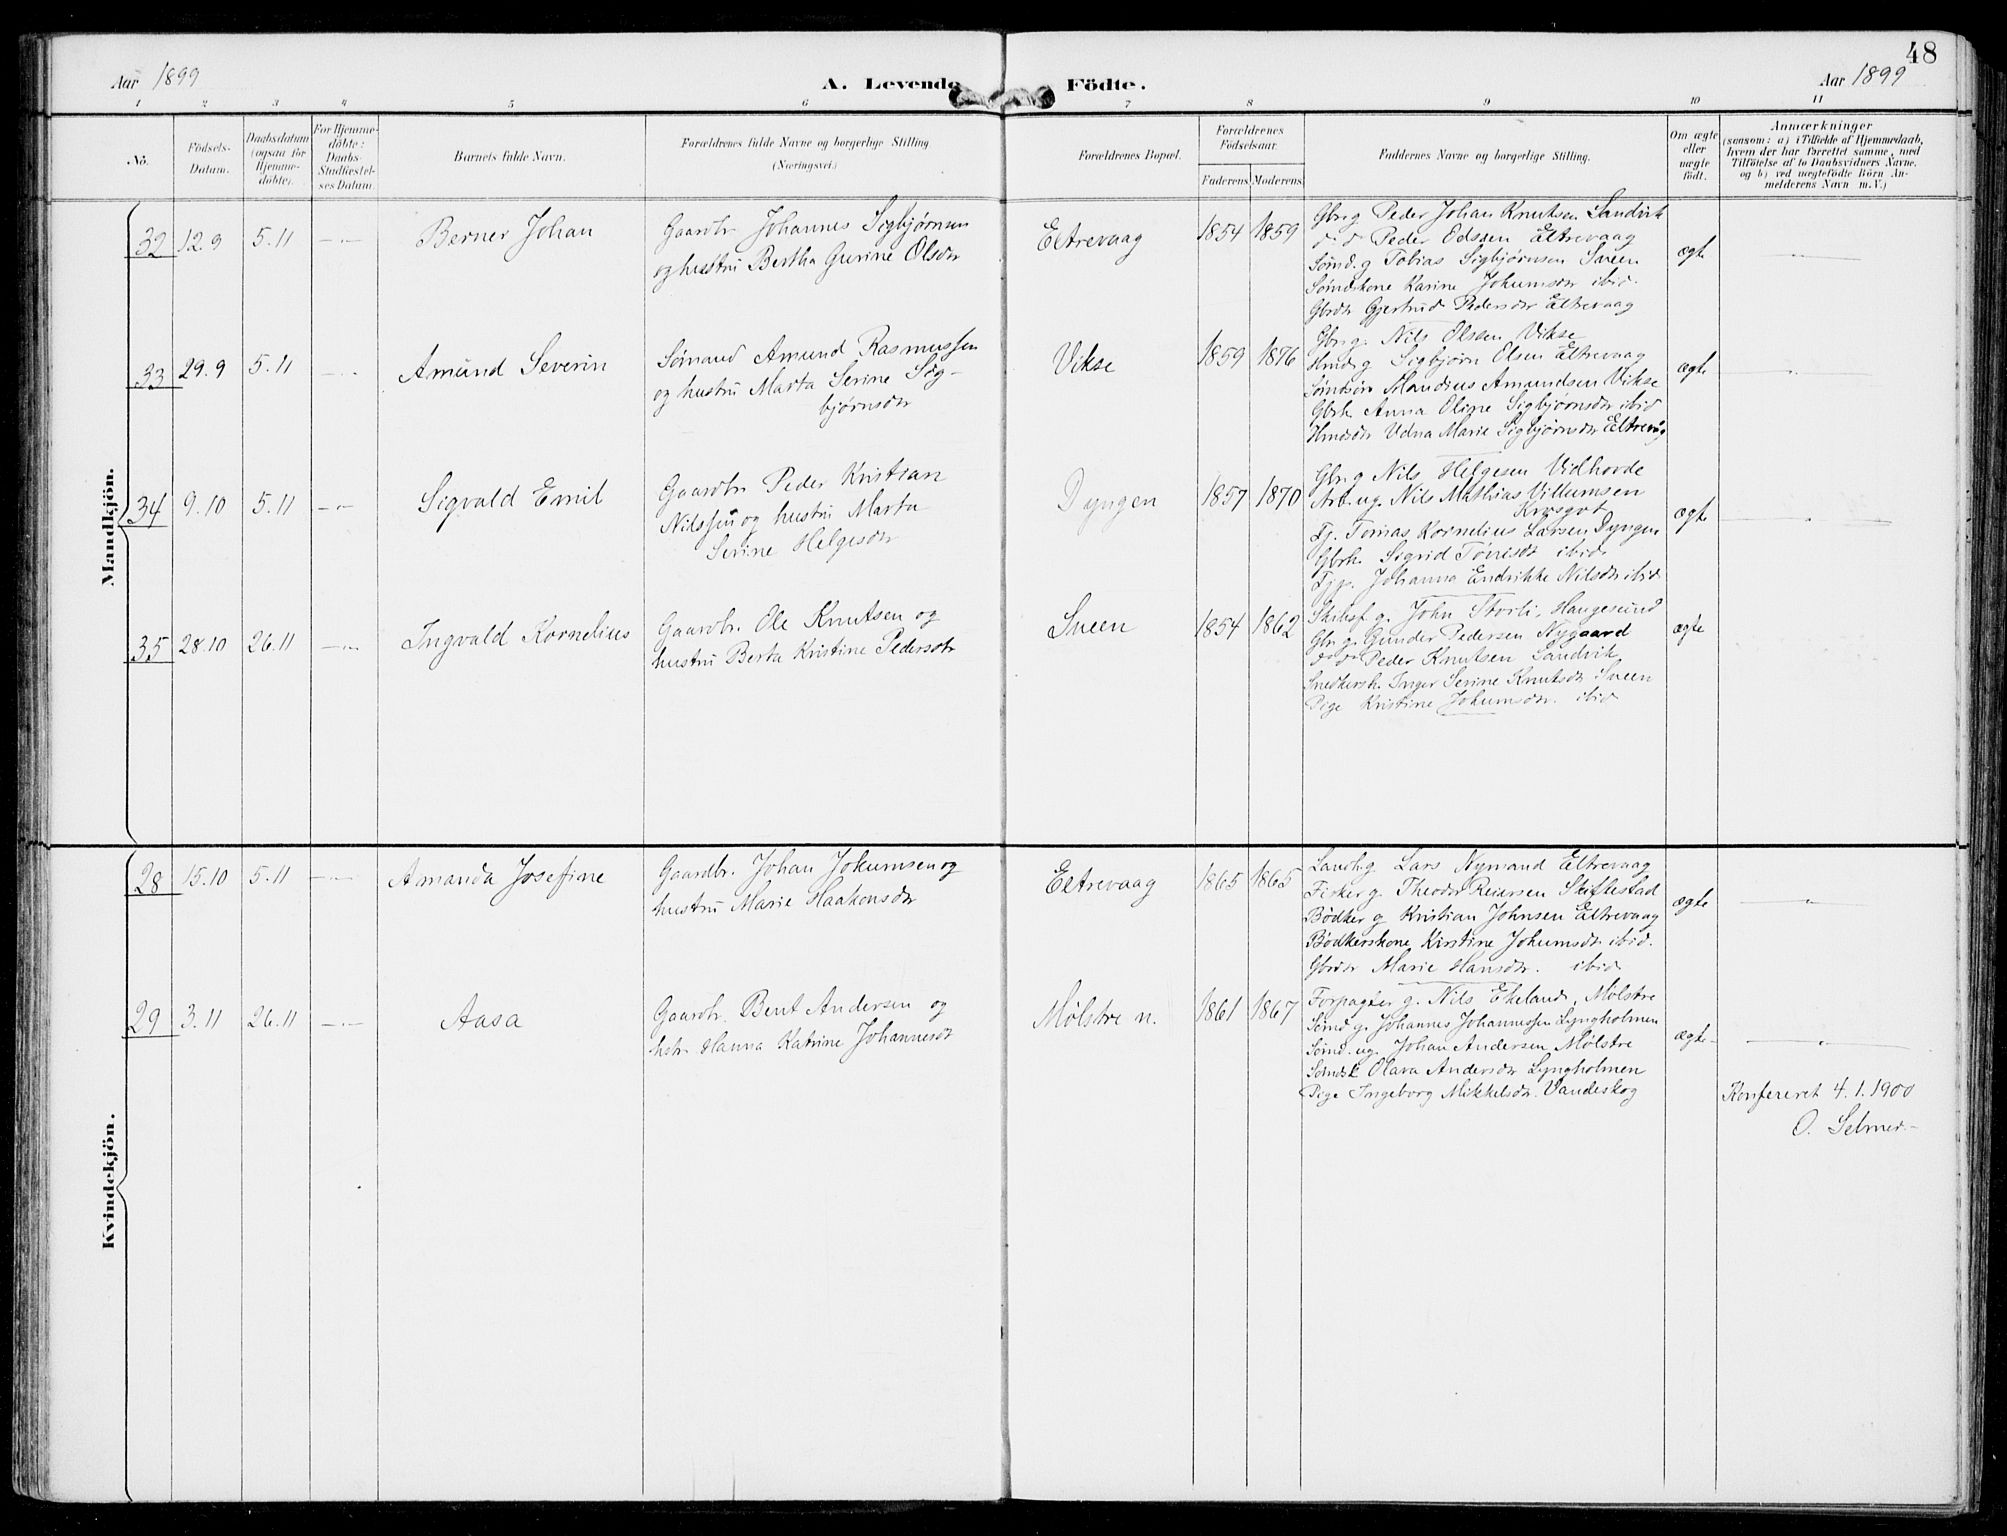 48
Aar 1899
A. Levende Födte.
Aar 1899
1 2 3 4 5 6 7 8 9 10 11
No.
Födsels-Datum.
Daabsdatum (ogsaa for Hjemme-döbte).
For Hjemme-döbte: Daabs-Stadfæstel-ses Datum.
Barnets fulde Navn.
Forældrenes fulde Navne og borgerlige Stilling
(Næringsvei.)
Forældrenes Bopæl.
Forældrenes Födselsaar.
Faderens Moderens
Faddernes Navne og borgerlige Stilling.
Om ægte eller uægte födt.
Anmærkninger
(saasom: a) i Tilfælde af Hjemmedaab,
hvem der har forrettet samme, med
Tilföielse af to Daabsvidners Navne,
og b) ved uægtefödte Börn An-
melderens Navn m.V.)
Mandkjön.
32 12.9 5.11 —"— Berner Johan
Gaardbr. Johannes Sigbjørnsen
og hustru Bertha Gurine Olsdr
Eltrevaag 1854 1859
Gbr. g Peder Johan Knutsen Sandvik
d. d Peder Odssen Eltrevaag
Sømd. g Tobias Sigbjørnsen Sveen
Sømdskone Karine Jokumsdr ibid.
Gbrdtr Gjertrud Pedersdr Eltrevaag
ægte —"—
33 29.9 5.11 —"— Amund Severin
Sømand Amund Rasmussen
og hustru Marta Serine Sig-
bjørnsdr
Vikse 1859 1876
Gbr. g. Nils Olssen Vikse
Hmd g Sigbjørn Olsen Eltrevaag
Sømdsøn Mandius Amundsen Vikse
Gbrk Anna Oline Sigbjørnsdr ibid
Hmdsdr Udna Marie Sigbjørnsdr Eltrevåg
ægte —"—
34 9.10 5.11 —"— Sigvald Emil
Gaardbr Peder Kristian
Nilssen og hustru Marta
Serine Helgesdr
Dyngen 1857 1870
Gbr. g Nils Helgesen Vidhovde
Arb. ug. Nils Mathias Villumsen
Tj. Tomas Kornelius Larsen Dyngen
Gbrk. Sigrid Tønesdr ibid.
Tjp. Johanna Endrikke Nilsdr ibid
ægte —"—
35 28.10 26.11 —"— Ingvald Kornelius
Gaardbr. Ole Knutsen og
hustru Berta Kristine Pedersdtr
Sveen 1854 1862
Skibsf g. John Storli, Haugesund
Gbr. g. Gunder Pedersen Nygaard
d d Peder Knutsen Sandvik
Snedkersk. Inger Serine Knutsdr Sveen
Pige Kristine Jokumsdr. ibid
ægte
Kvindekjön.
28 15.10 5.11 —"— Amanda Josefine
Gaardbr. Johan Jokumsen og
hustru Marie Haakonsdr
Eltrevaag 1865 1865
Landh. g Lars Nymand Eltrevaag
Fisker g. Theodor Reiersen Skiftestad
Bødker g Kristian Johnsen Eltrevaag
Bødkerskone Kirstine Jokumsdr ibid.
Gbrdtr Marie Hansdr. ibid.
ægte —"—
29 3.11 26.11 —"— Aasa
Gaardbr. Bent Andersen og
hstr. Hanna Katrine Johannesdr
Mølstre n. 1861 1867
Forpagter g. Nils Ekeland, Mølstre
Sømd g. Johannes Johannessen Lyngholmen
Sømd. ug. Johan Andersen Mølstre
Sømdsk Olava Andersdr Lyngholmen
Pige Ingeborg Mikkelsdr. Vandeskog
ægte —"—
Konfereret 4.1.1900
O. Selmer.